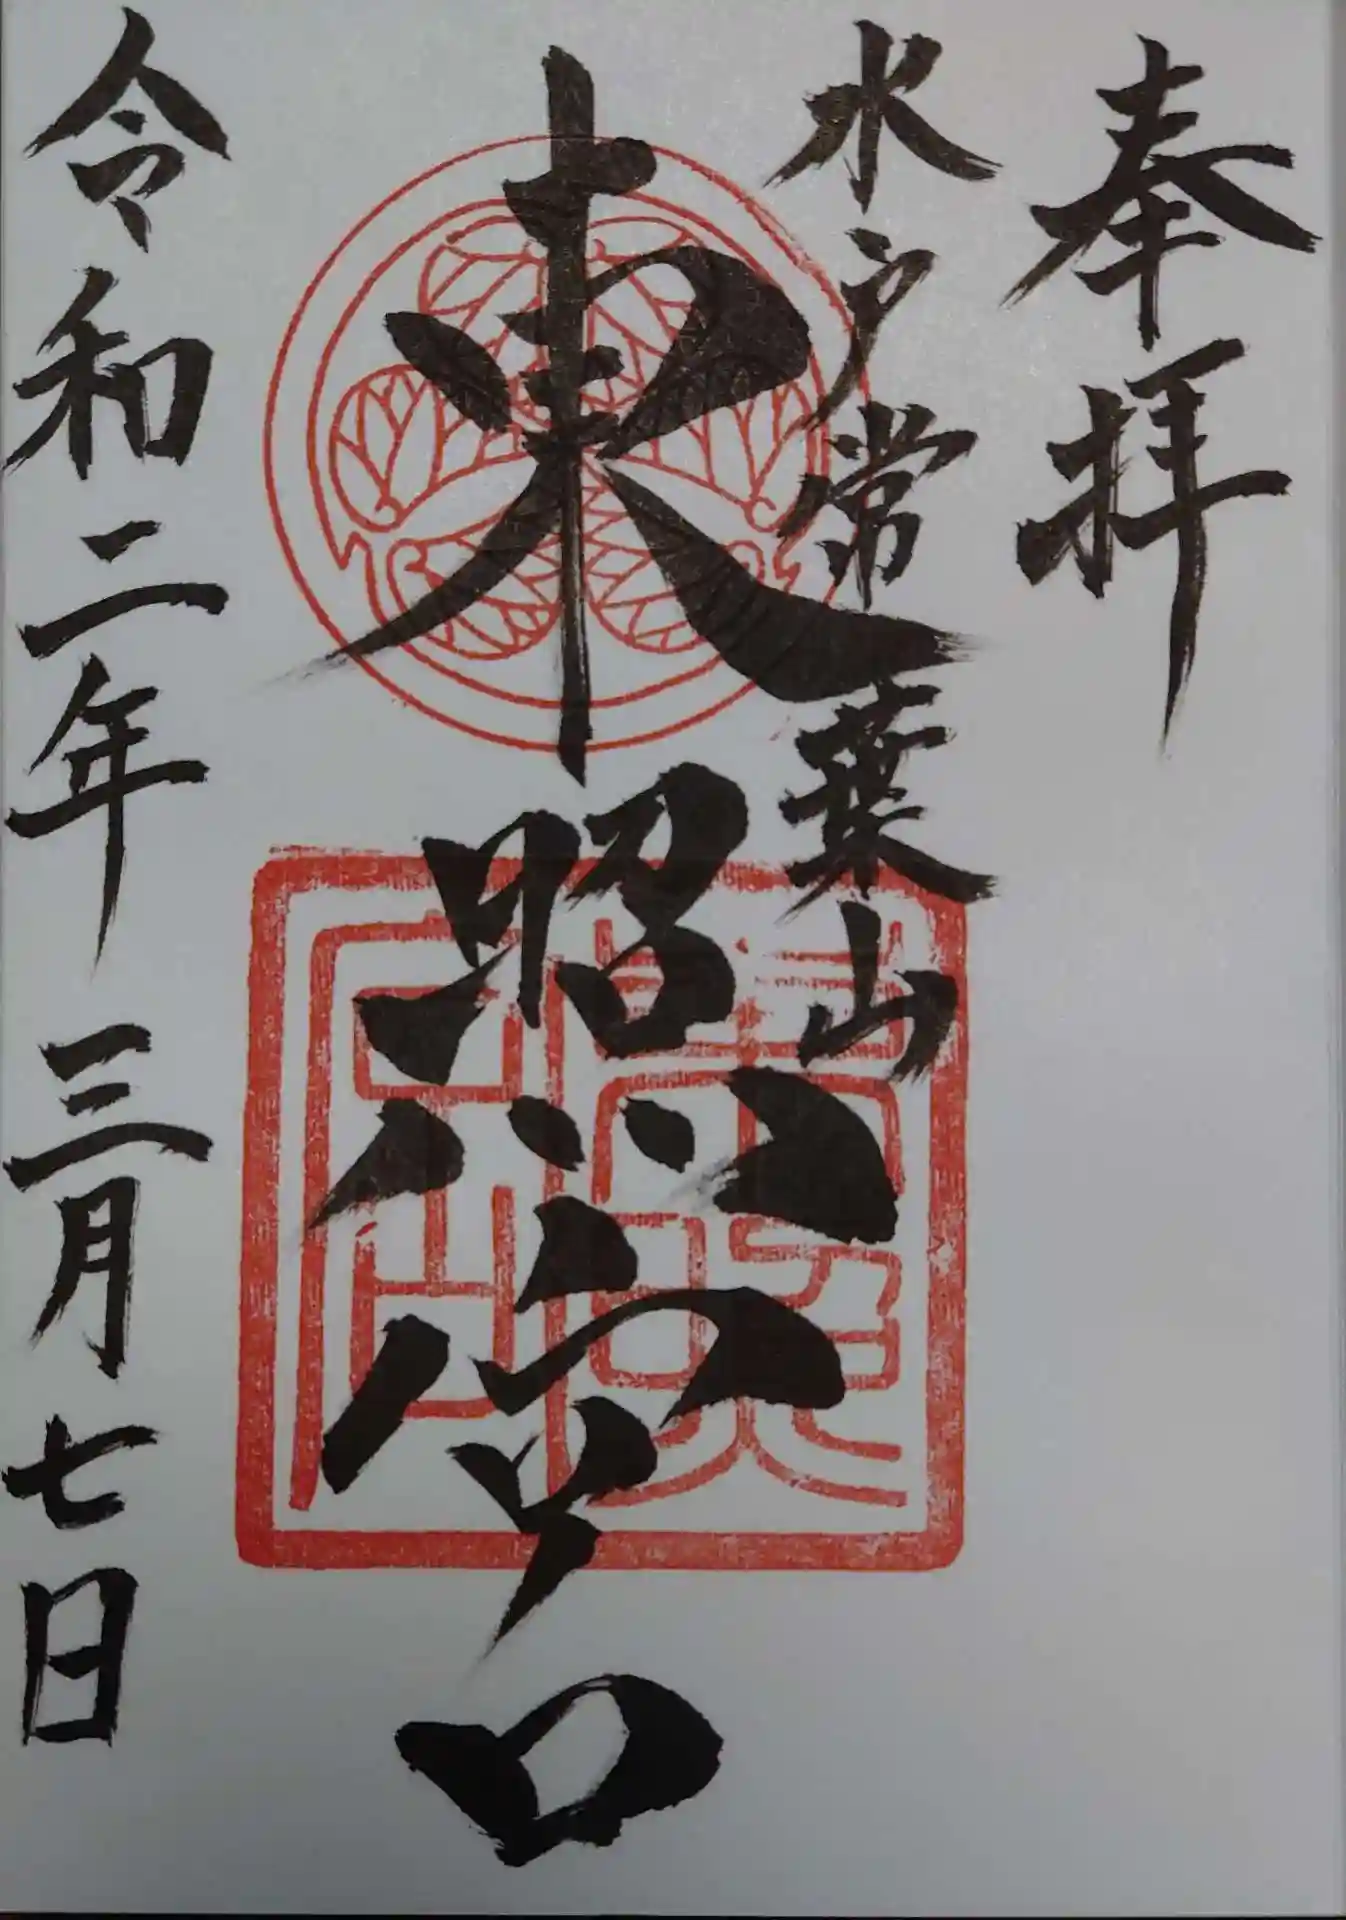 奉拝
水戸常葉山
東照宮
令和二年 三月七日